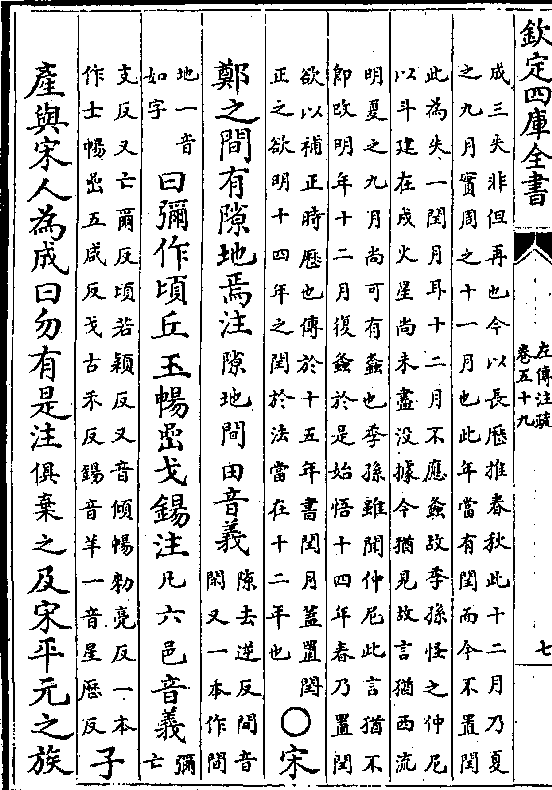 欽定四庫全書
左傳注疏
卷五十九
七
成三失非但再也今以長歷推春秋此十二月乃夏
之九月實周之十一月也此年當有閏而今不置閏
此為失一閏月耳十二月不應螽故季孫怪之仲尼
以斗建在戌火星尚未盡没據今猶見故言猶西流
明夏之九月尚可有螽也季孫雖聞仲尼此言猶不
即改明年十二月復螽於是始悟十四年春乃置閏
欲以補正時歷也傳於十五年書閏月蓋置閏
正之欲明十四年之閏於法當在十二年也
○宋
鄭之間有隙地焉注隙地間田音義隙去逆反間音
閑又一本作間
地一音
如字
曰彌作頃丘玉暢嵒戈錫注凡六邑音義彌
亡
支反又亡爾反頃若穎反又音傾暢勑亮反一本
作士暢嵒五咸反戈古禾反錫音羊一音星歷反
子
產與宋人為成曰勿有是注俱棄之及宋平元之族